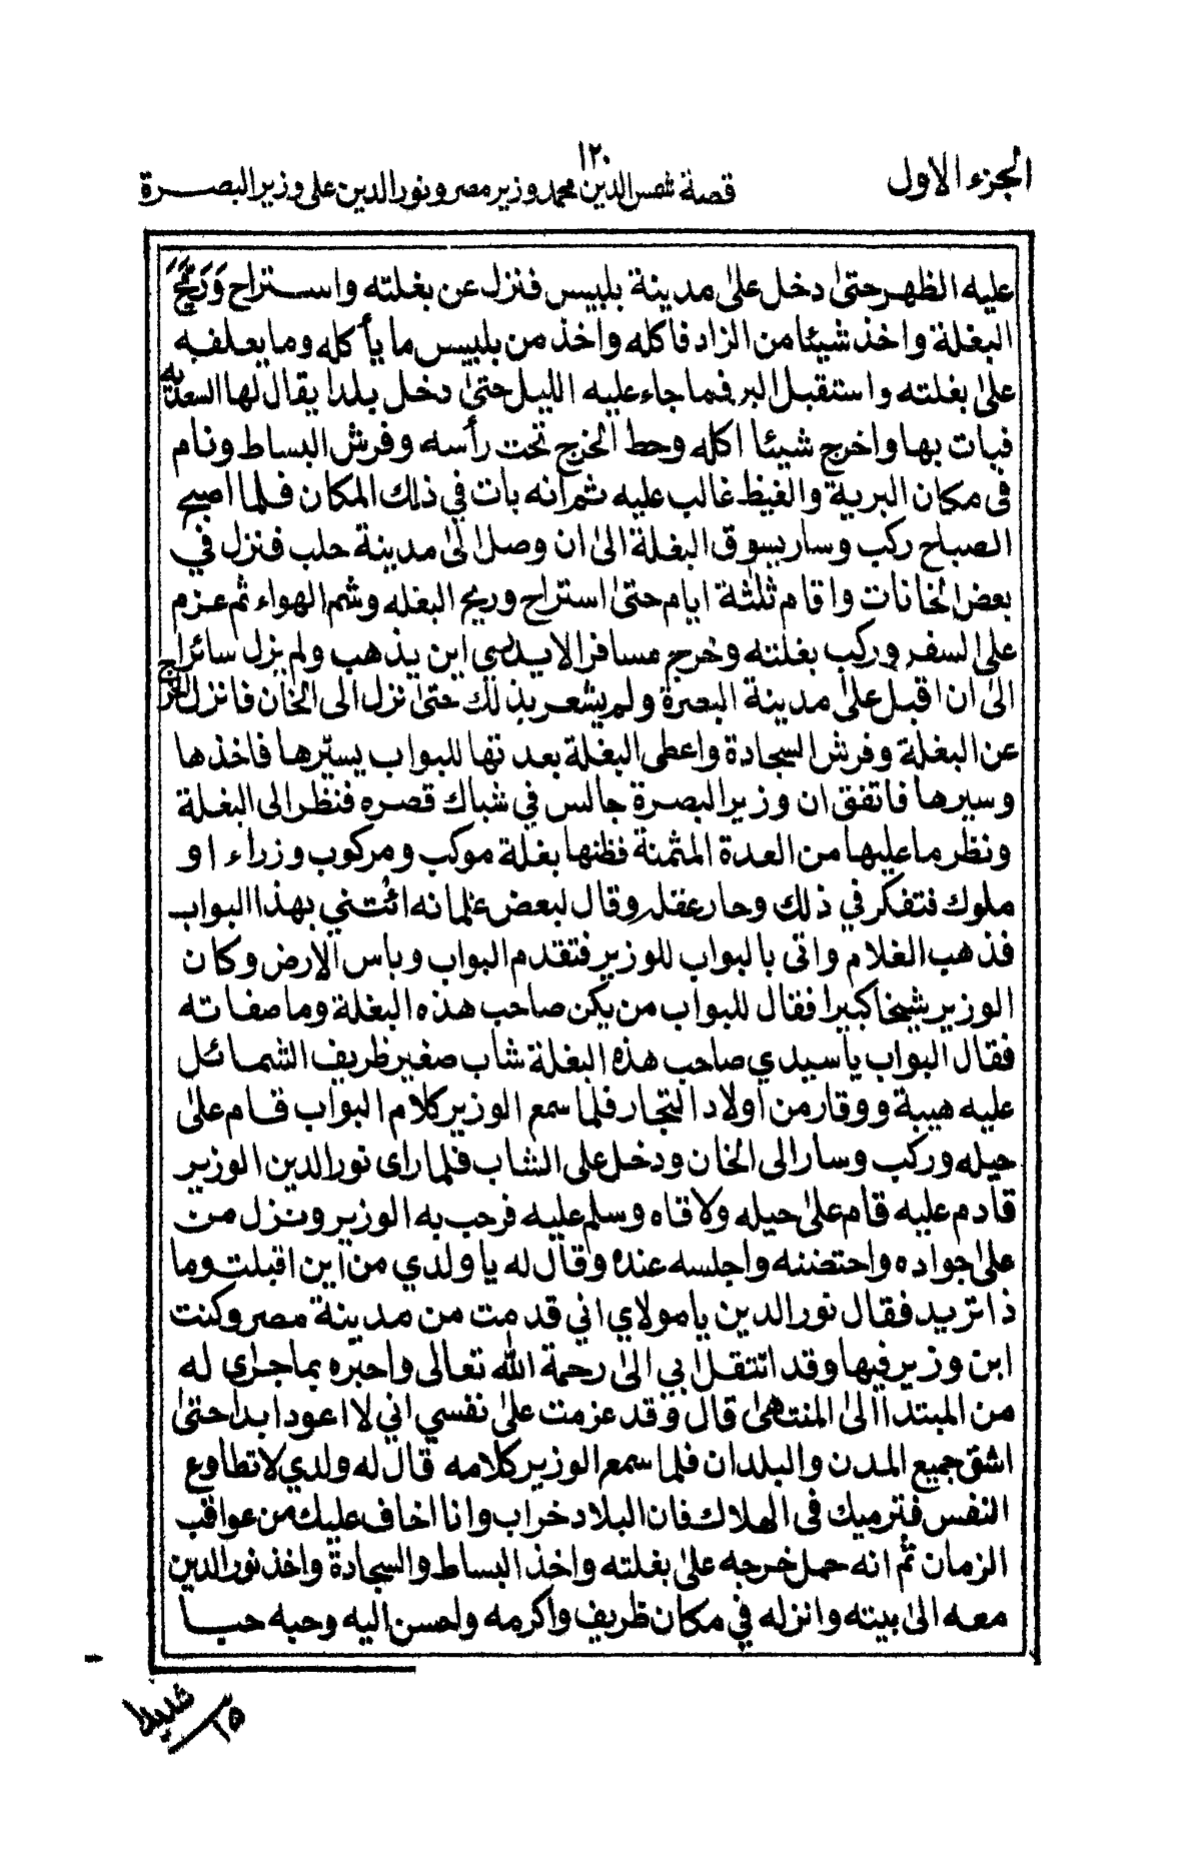 الجزء الاول
١٢٠
قصة شمس الدين محمد وزير مصر ونور الدين على وزير البصرة
عليه الظهر حتىٰ دخل علىٰ مدينة بلبيس فنزل عن بغلته واستراح وَرَيَّحَ
البغلة واخذ شيئا من الزاد فاكله واخذ من بلبيس ما يأكله وما يعلف به
علىٰ بغلته واستقبل البر فما جاء عليه الليل حتىٰ دخل بلدا يقال لها السعدية
فبات بها واخرج شيئا اكله وحط الخرج تحت رأسه وفرش البساط ونام
فى مكان البرية والغيظ غالب عليه ثم انه بات في ذلك المكان فلما اصبح
الصباح ركب وسار يسوق البغلة الىٰ ان وصل الىٰ مدينة حلب فنزل في
بعض الخانات واقام ثلٰثة ايام حتىٰ استراح وريح البغله وشم الهواء ثم عزم
على السفر وركب بغلته وخرج مسافرا لا يدرى اين يذهب ولم يزل سائرا
الىٰ ان اقبل علىٰ مدينة البصرة ولم يشعر بذلك حتىٰ نزل الى الخان فانزل الخرج
عن البغلة وفرش السجادة واعطى البغلة بعدتها للبواب يسيّرها فاخذها
وسيرها فاتفق ان وزير البصرة جالس في شباك قصره فنظر الى البغلة
ونظر ما عليها من العدة المثمنة فظنها بغلة موكب ومركوب وزراء او
ملوك فتفكر في ذلك وحار عقله وقال لبعض غلمانه ائتني بهذا البواب
فذهب الغلام واتى بالبواب للوزير فتقدم البواب وباس الارض وكان
الوزير شيخا كبيرا فقال للبواب من يكن صاحب هذه البغلة وما صفاته
فقال البواب يا سيدي صاحب هذه البغلة شاب صغير ظريف الشمائل
عليه هيبة ووقار من اولاد التجار فلما سمع الوزير كلام البواب قام علىٰ
حيله وركب وسار الى الخان ودخل على الشاب فلما راى نور الدين الوزير
قادم عليه قام علىٰ حيله ولاقاه وسلم عليه فرحب به الوزير ونزل من
علىٰ جواده واحتضنه واجلسه عنده وقال له يا ولدي من اين اقبلت وما
ذا تريد فقال نور الدين يا مولاي اني قدمت من مدينة مصر وكنت
ابن وزير فيها وقد انتقل ابي الىٰ رحمة الله تعالى واخبره بما جرى له
من المبتدا الىٰ المنتهىٰ قال وقد عزمت علىٰ نفسي اني لا اعود ابدا حتىٰ
اشق جميع المدن والبلدان فلما سمع الوزير كلامه قال له ولدي لا تطاوع
النفس فترميك فى الهلاك فان البلاد خراب وانا اخاف عليك من عواقب
الزمان ثم انه حمل خرجه علىٰ بغلته واخذ البساط والسجادة واخذ نور الدين
معه الىٰ بيته وانزله في مكان ظريف واكرمه واحسن اليه وحبه حبا
شديدا